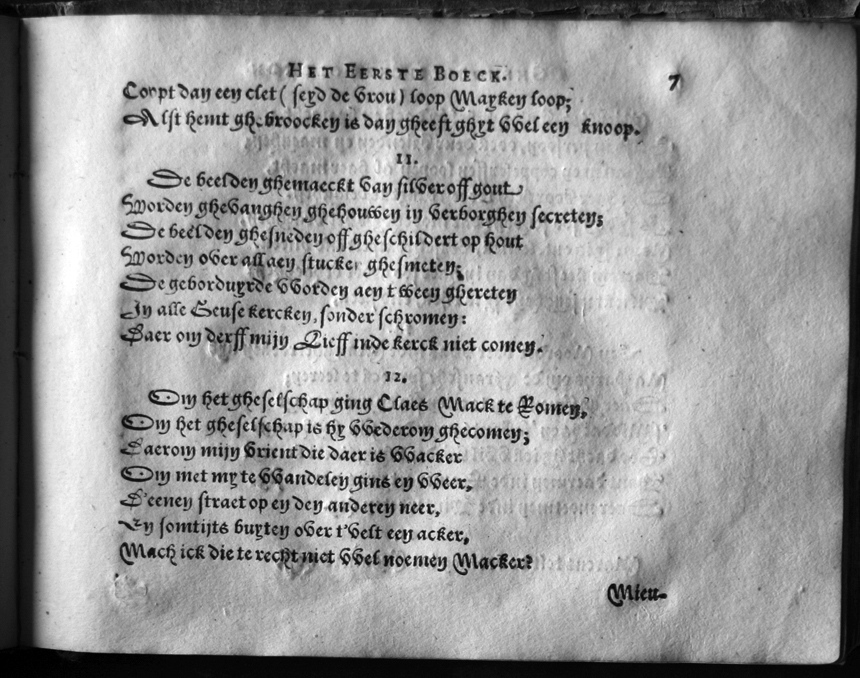 HET EERSTE BOECK. 7
Corpt dan een clet ( seyd de Vrou ) loop Mayken loop;
Alst hemt ghebroocken is dan gheeft ghyt VVel een knoop.
11.
De beelden ghemaeckt Van silVer off gout
Worden gheVanghen ghehouwen in Verborghen secreten;
De beelden ghesneden off gheschildert op hout
Worden oVer all aen stucken ghesmeten;
De geborduyrde VVorden aen tween ghereten
In alle Geuse kercken, sonder schromen:
Daer om derff mijn Lieff inde kerck niet comen.
12.
Om het gheselschap ging Claes Mack te Romen,
Om het gheselschap is hy VVederom ghecomen;
Daerom mijn Vrient die daer is VVacker
Om met my te VVandelen gins en VVeer,
D'eenen straet op en den anderen neer,
En somtijts buyten oVer t'Velt een acker,
Mach ick die te recht niet VVel noemen Macker?
Mieu-